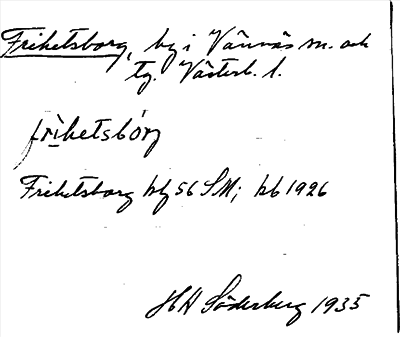 Frihetsborg, by i Vännäs sn. och
tg. Västerb. l.
frìhetsbórg
Frihetsborg kbf 56 SM; kb 1926
H H Söderberg 1935